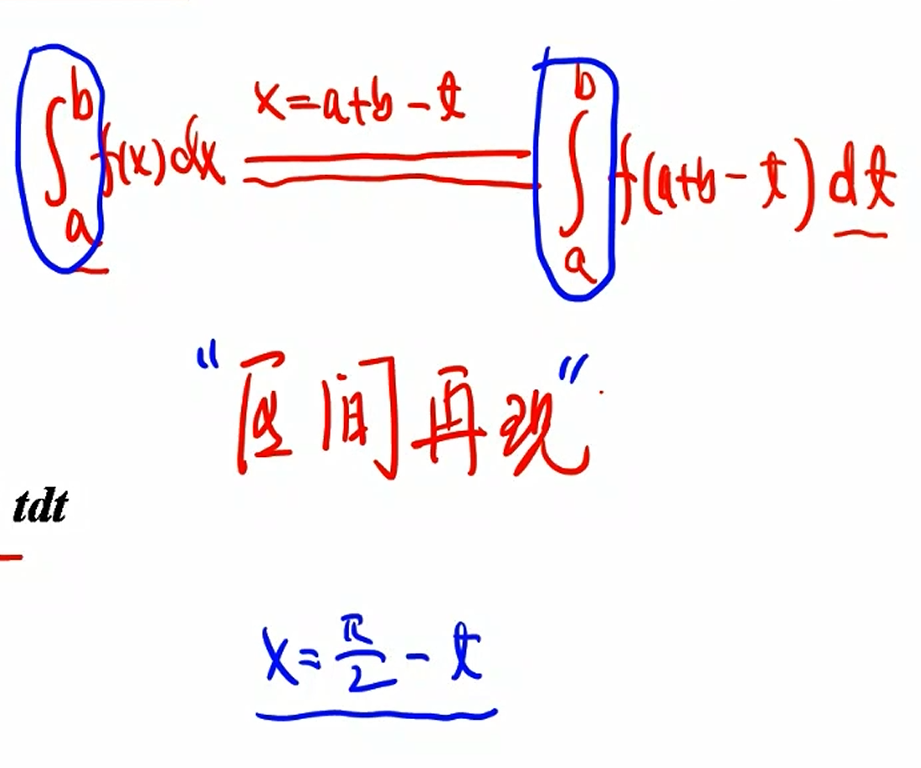 ∫_a^b f(x)dx  x=a+b-t  ∫_a^b f(a+b-t)dt
“区间再现”
tdt
x=π/2-t